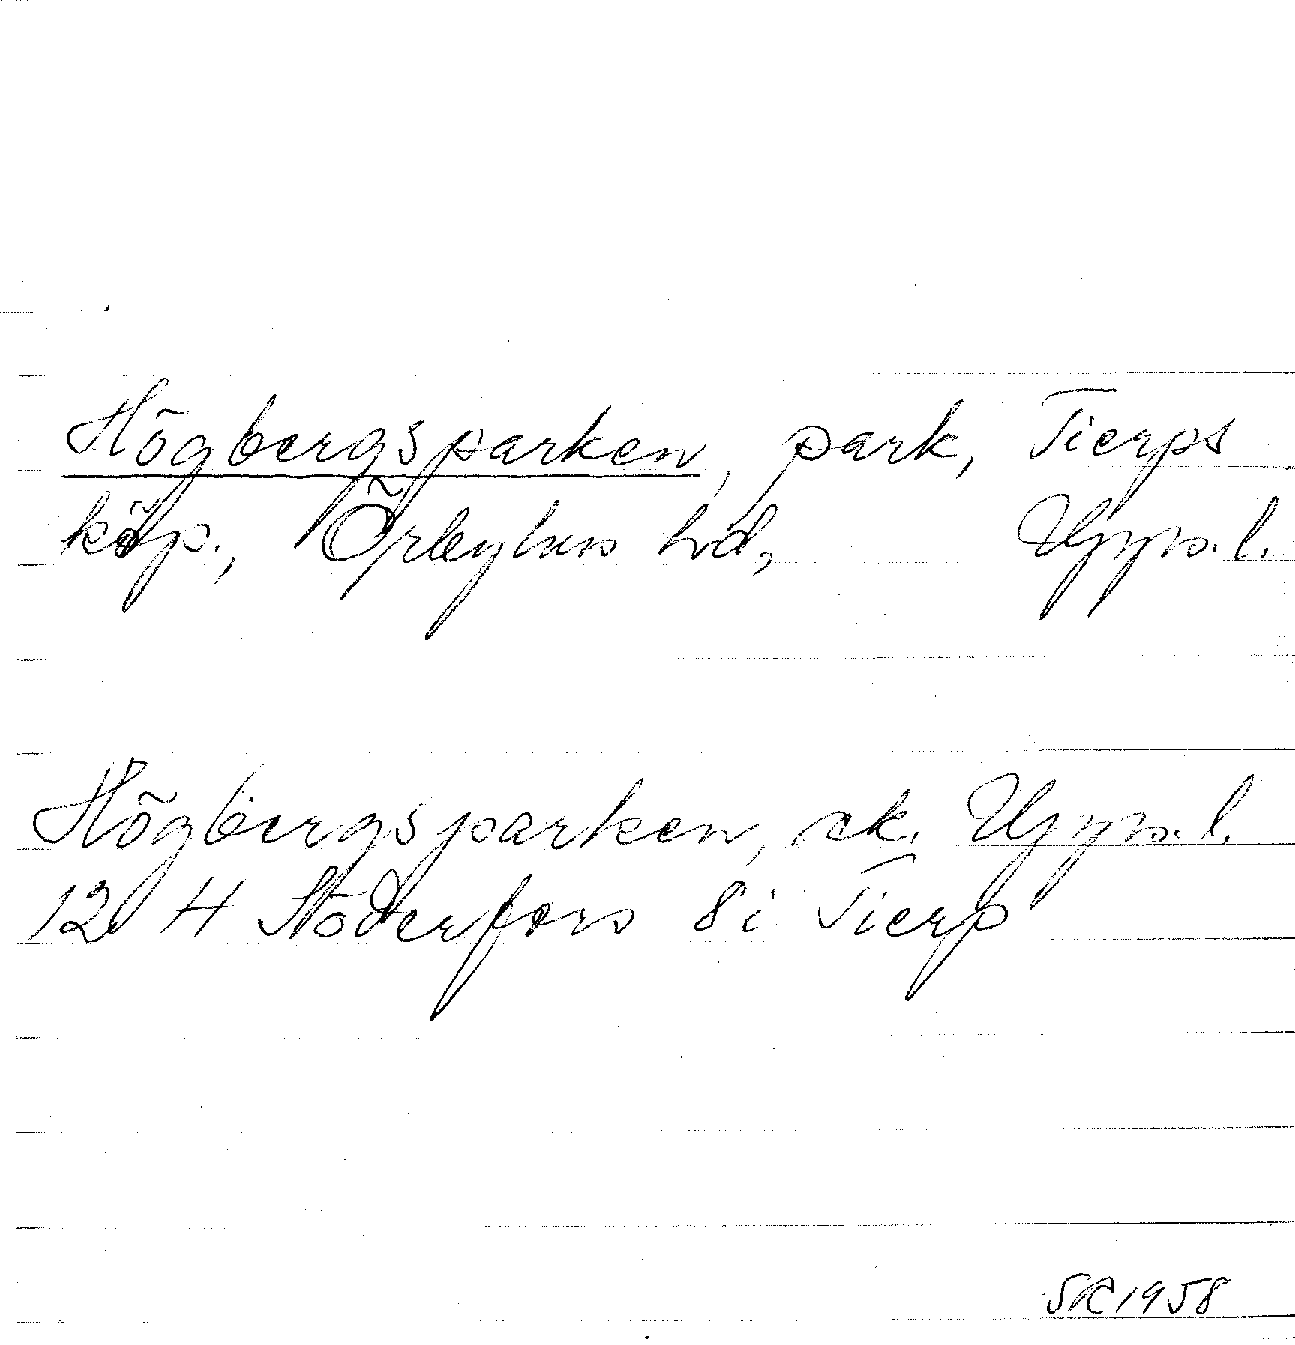 Högbergsparken, park, Tierps
köp., Örbyhus hd, Upps. l.
Högbergsparken, ek. Upps. l.
12 H Söderfors 8 i Tierp
SR 1958